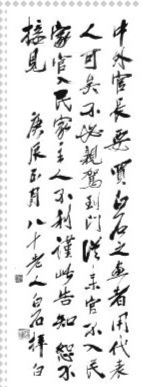 中外官长要买白石之画者用代表
人可矣不必亲驾到门从来官不入民
家官入民家主人不利谨此告知恕不
接见 庚辰正月八十老人白石拜白